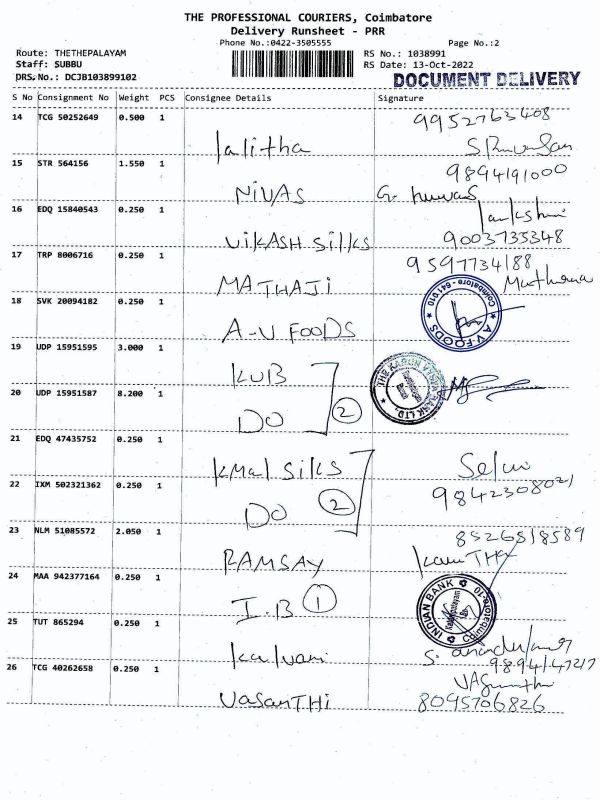 THE PROFESSIONAL COURIERS, Coimbatore
Delivery Runsheet - PRR
Phone No.:0422-3505555
Page No.:2
Route: THETHEPALAYAM
RS No.: 1038991
Staff: SUBBU
RS Date: 13-Oct-2022
DRS No.: DCJB103899102
DOCUMENT DELIVERY
S No Consignment No Weight PCS Consignee Details Signature
14 TCG 50252649 0.500 1 lalitha 9952763408
15 STR 564156 1.550 1 NIVAS 9894191000
16 EDQ 15840543 0.250 1 VIKASH Silks 9003735348
17 TRP 8006716 0.250 1 MATHAJI 9597734188
18 SVK 20094182 0.250 1 A-V FOODS
A V FOODS Coimbatore - 641 010
19 UDP 15951595 3.000 1 KUB
20 UDP 15951587 8.200 1 DO 2
21 EDQ 47435752 0.250 1 KMal Silks Selvi
22 IXM 502321362 0.250 1 DO 2 9842308021
23 NLM 51085572 2.050 1 RAMSAY 8526818589
24 MAA 942377164 0.250 1 I.B 1
INDIAN BANK Coimbatore-10
25 TUT 865294 0.250 1 Kalvani
26 TCG 40262658 0.250 1 VasanTHi 8095706826